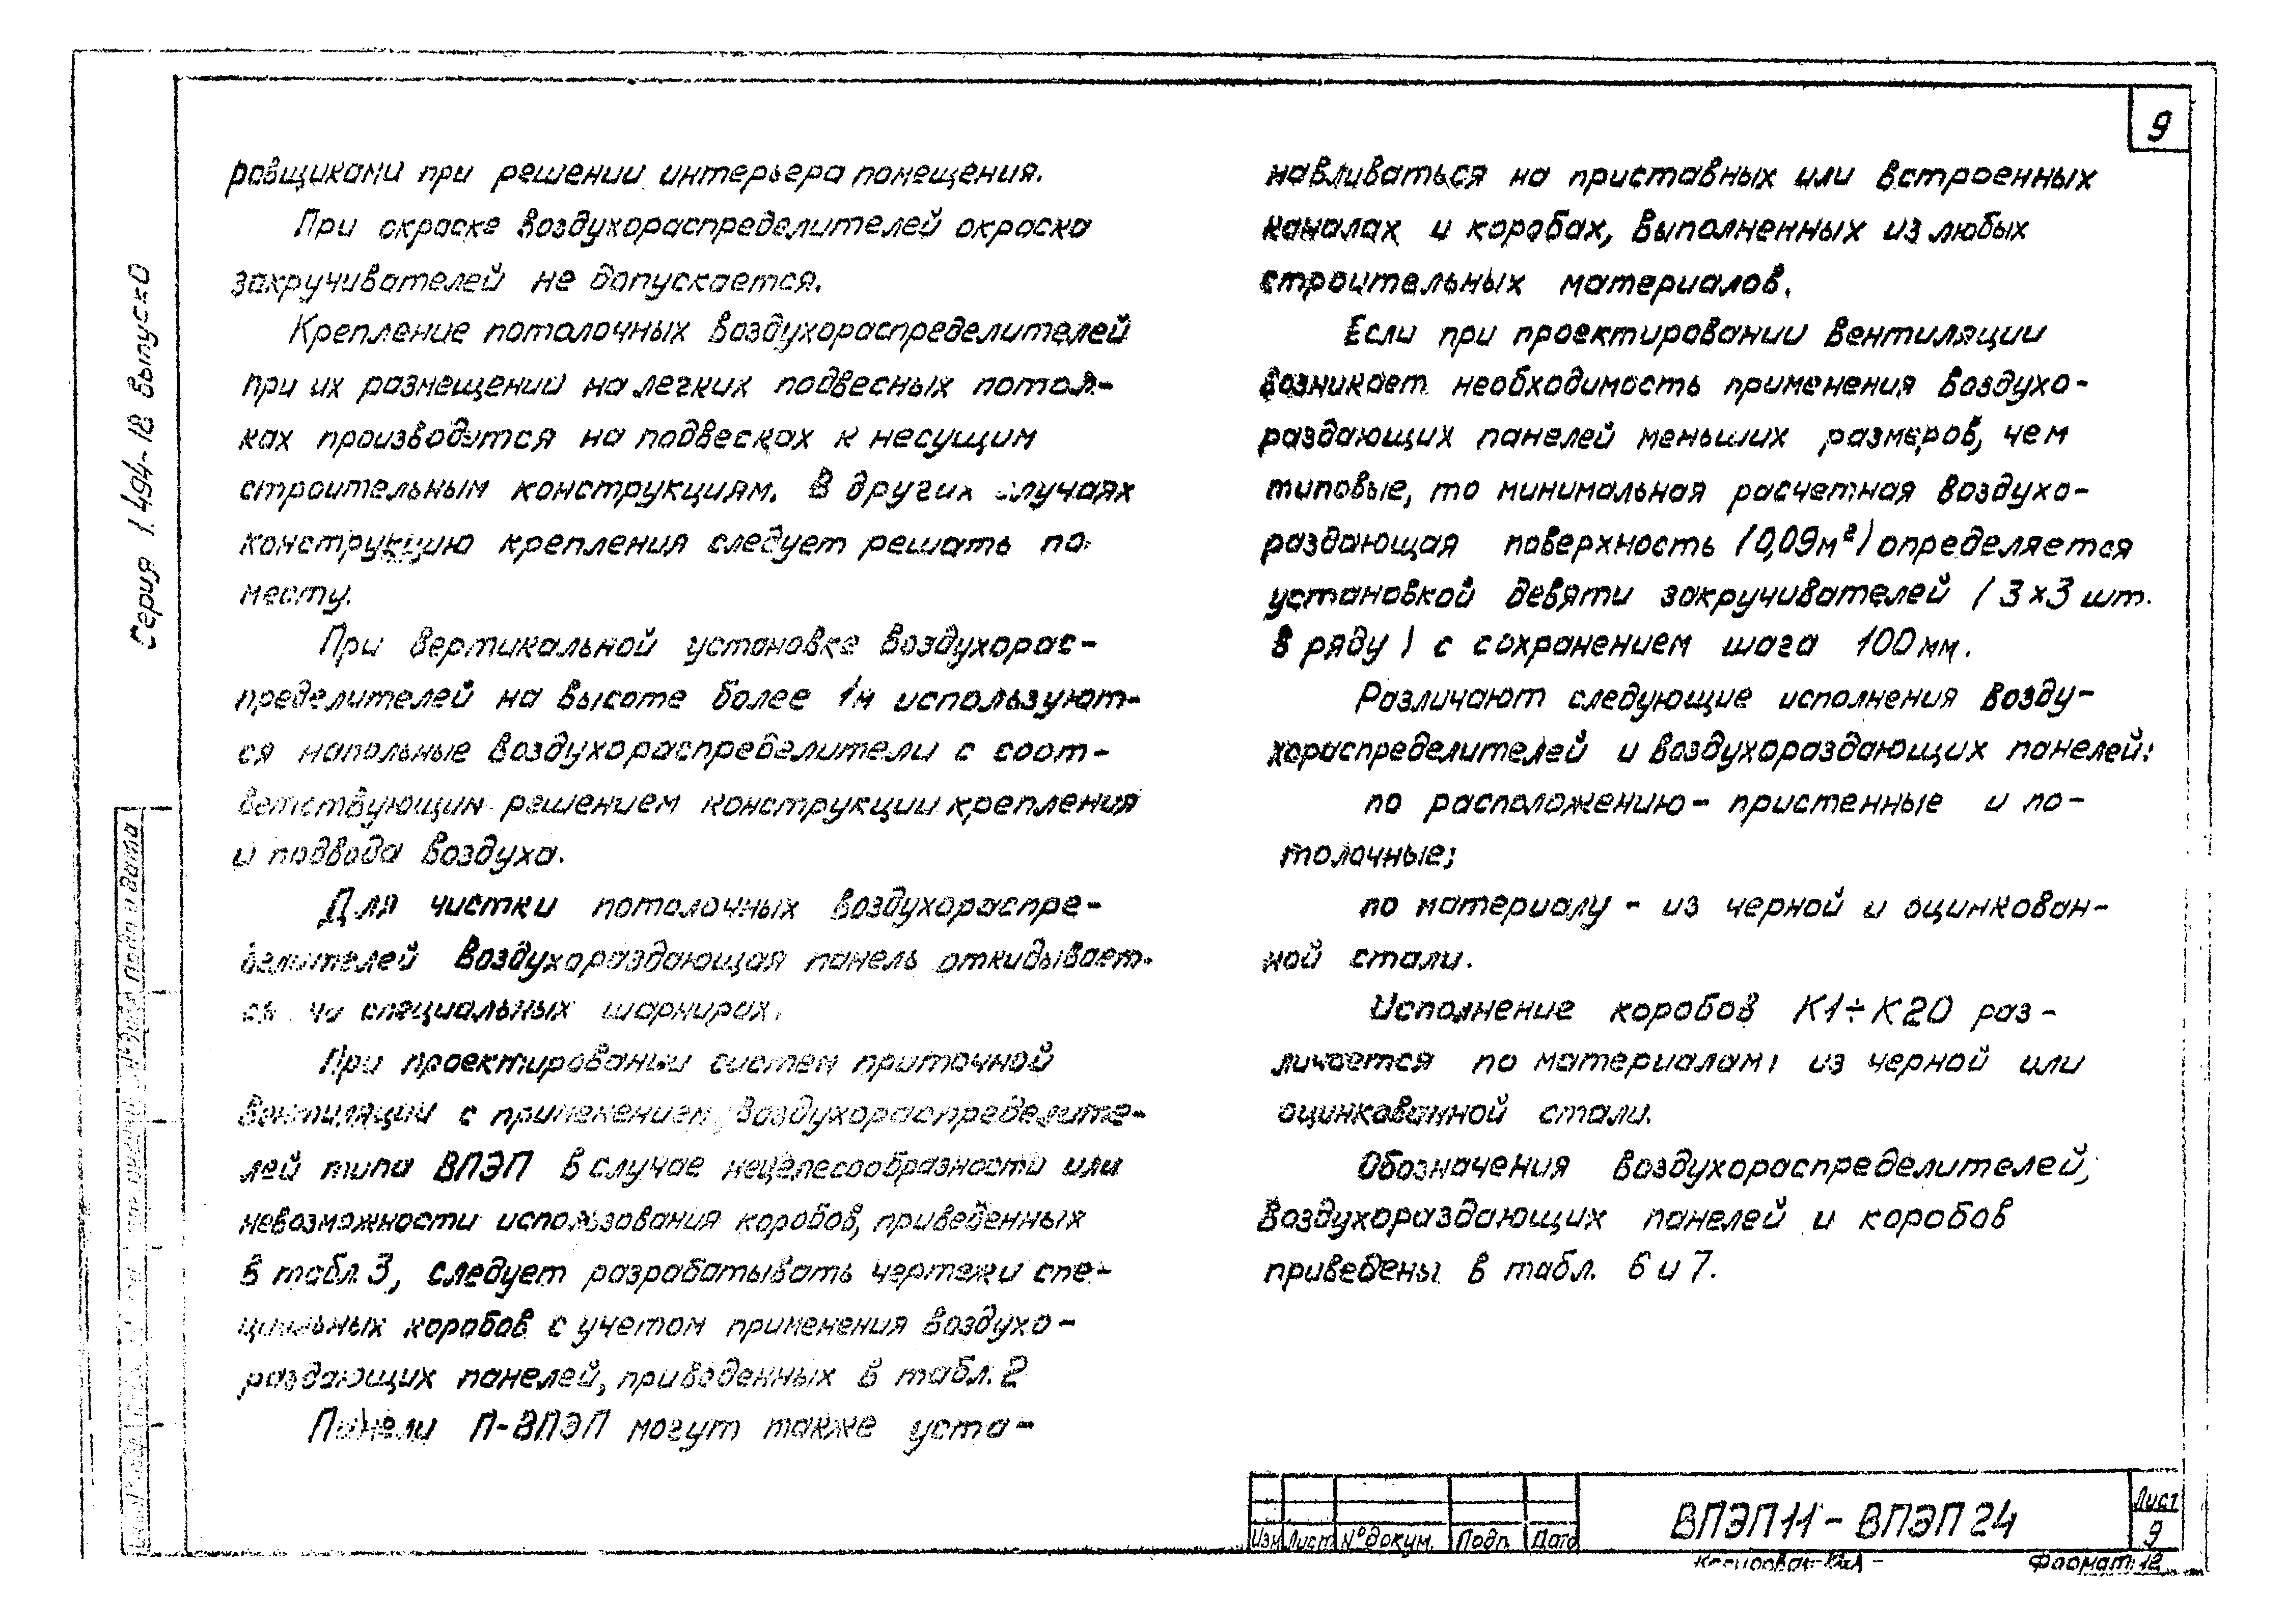 9
ровщиками при решении интерьера помещения.
При окраске воздухораспределителей окраска
закручивателей не допускается.
Крепление потолочных воздухораспределителей
при их размещении на легких подвесных потол-
ках производится на подвесках к несущим
строительным конструкциям. В других случаях
конструкцию крепления следует решать по
месту.
При вертикальной установке воздухорас-
пределителей на высоте более 1м используют-
ся напольные воздухораспределители с соот-
ветствующим решением конструкции крепления
и подвода воздуха.
Для чистки потолочных воздухораспре-
делителей воздухораздающая панель откидывает-
ся на специальных шарнирах.
При проектировании систем приточной
вентиляции с применением воздухораспределите-
лей типа ВПЭП в случае нецелесообразности или
невозможности использования коробов, приведенных
в табл. 3, следует разрабатывать чертежи спе-
циальных коробов с учетом применения воздухо-
раздающих панелей, приведенных в табл. 2
Панели П-ВПЭП могут также уста-
навливаться на приставных или встроенных
каналах и коробах, выполненных из любых
строительных материалов.
Если при проектировании вентиляции
возникает необходимость применения воздухо-
раздающих панелей меньших размеров, чем
типовые, то минимальная расчетная воздухо-
раздающая поверхность (0,09м²) определяется
установкой девяти закручивателей (3х3 шт.
в ряду) с сохранением шага 100 мм.
Различают следующие исполнения возду-
хораспределителей и воздухораздающих панелей:
по расположению - пристенные и по-
толочные;
по материалу - из черной и оцинкован-
ной стали.
Исполнение коробов К1÷К20 раз-
личается по материалам: из черной или
оцинкованной стали.
Обозначения воздухораспределителей,
воздухораздающих панелей и коробов
приведены в табл. 6 и 7.
Серия 1.494-18 выпуск 0
Подп и дата
Изм Лист № докум. Подп. Дата
ВПЭП 11 - ВПЭП 24
Лист
9
Копировал
Формат 12